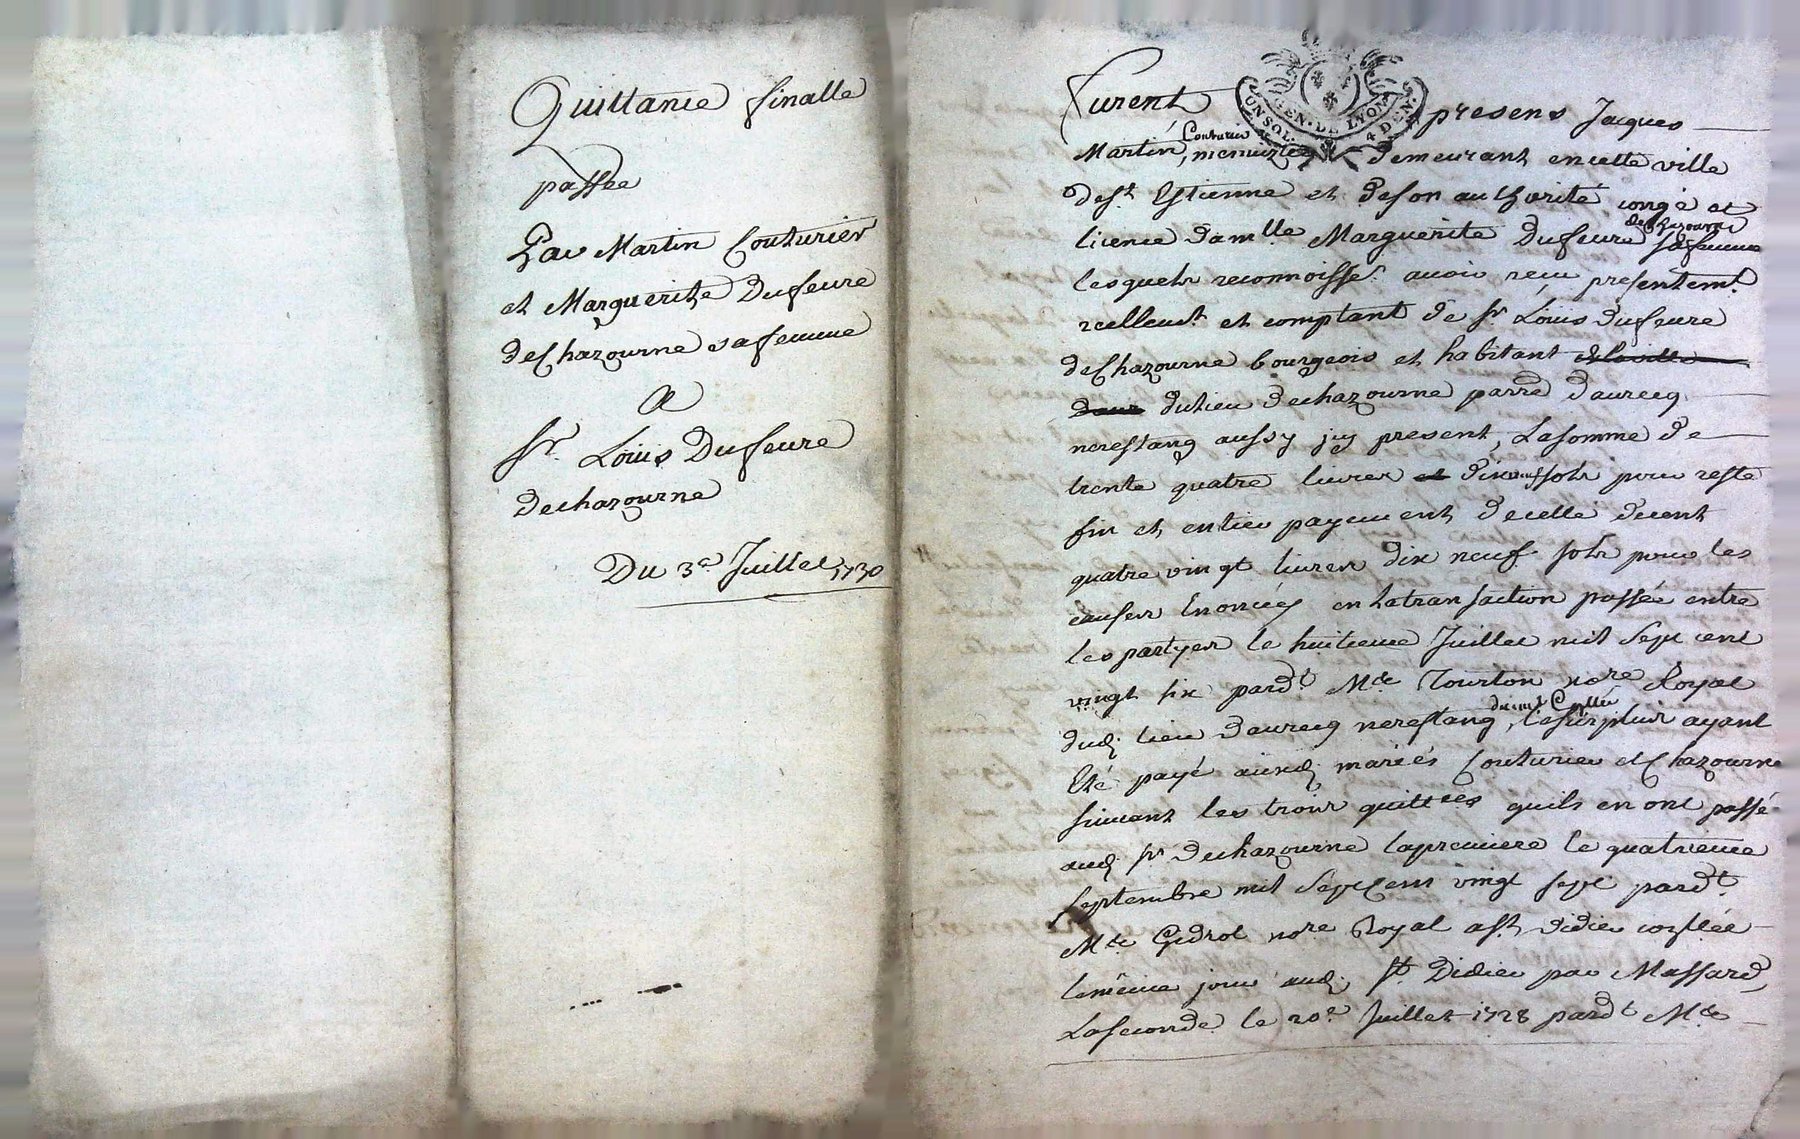 Quittance finalle
passée
Par Martin Couturier
et Marguerite Dufeure
deChazourne sa femme
A
Sr. Louis Dufeure
dechazourne
Du 3e Juillet 1730
GEN. DE LYON
UN SOL. 4 DEN.
Furent presens Jacques
Couturier
Martin, menuizier demeurant en cette ville
de St. Estienne et de son authorité congé et
de Chazourne
licence damlle Marguerite Dufeure sa femme
lesquels reconnoisst. avoir reçu presentemt.
reellemt. et comptant de Sr. Louis Dufeure
deChazourne bourgeois et habitant
du lieu dechazourne parre d'aurecq
nerestang aussy icy present, La somme de
trente quatre livres et dixneuf sols pour reste
fin et entier payement de celle de cent
quatre vingt livres dix neuf sols pour les
causes Enoncées en la transaction passée entre
les partyes le huitieme Juillet mil Sept cent
vingt six pardt. Me Tourton nore Royal
duemt Conllée
dud. lieu d'aurecq nerestang, le surplus ayant
Eté payé auxd. mariés Couturier et Chazourne
suivant les trois quittces qu'ils en ont passé
aud. Sr dechazourne la premiere le quatrieme
Septembre mil Sept Cent vingt sept pardt.
Me Gidrol nore Royal a St. Didier conllée
le même jour aud. St. Didier par Massard,
La seconde le 20e Juillet 1728 pardt Me